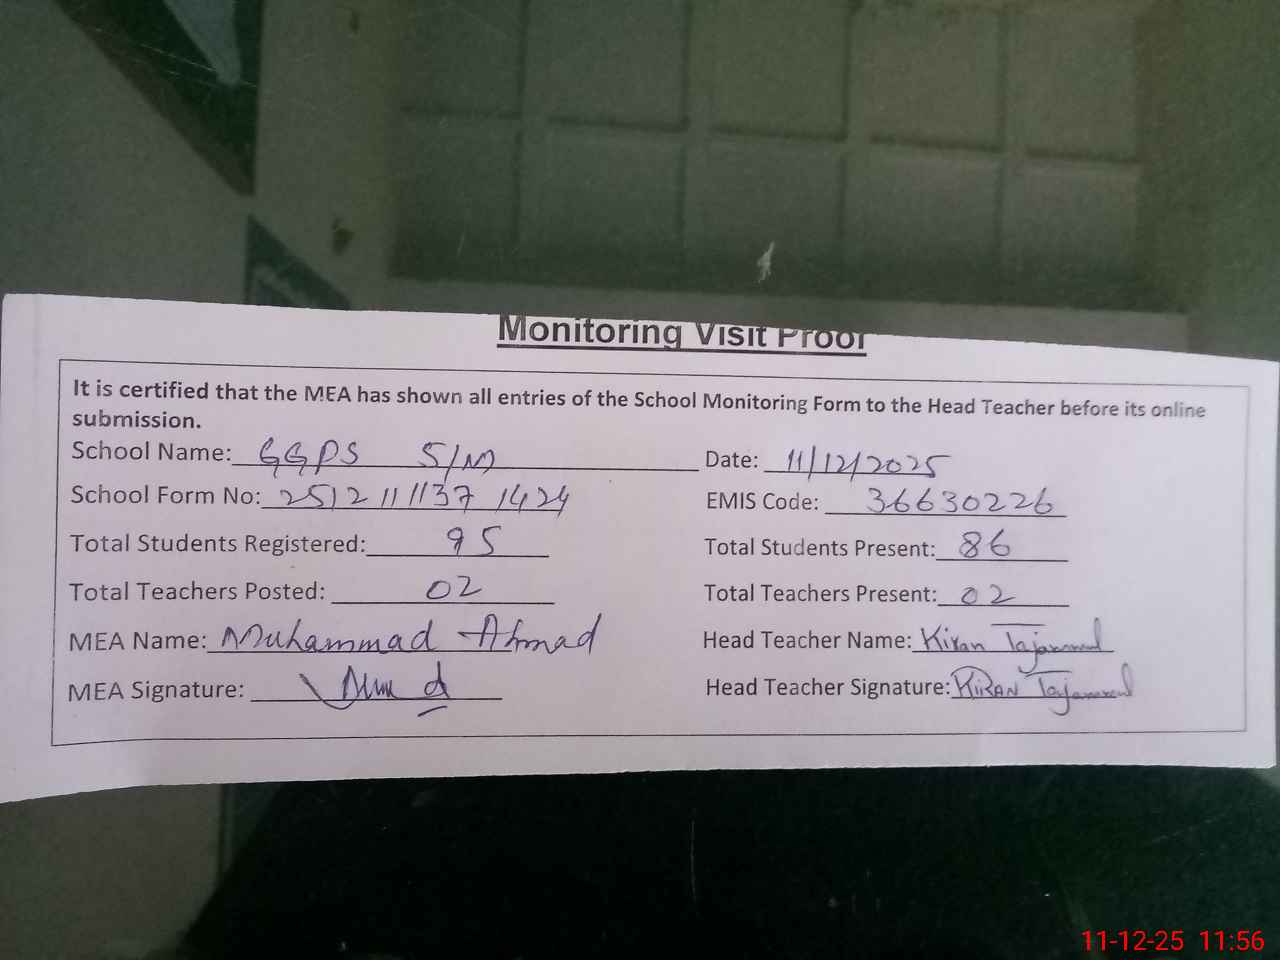 Monitoring Visit Proof
It is certified that the MEA has shown all entries of the School Monitoring Form to the Head Teacher before its online
submission.
School Name: GGPS S/M Date: 11/12/2025
School Form No: 2512 11 1137 1424 EMIS Code: 36630226
Total Students Registered: 95 Total Students Present: 86
Total Teachers Posted: 02 Total Teachers Present: 02
MEA Name: Muhammad Ahmad Head Teacher Name: Kiran Tajammul
MEA Signature: Head Teacher Signature: KiRAN Tajammul
11-12-25 11:56